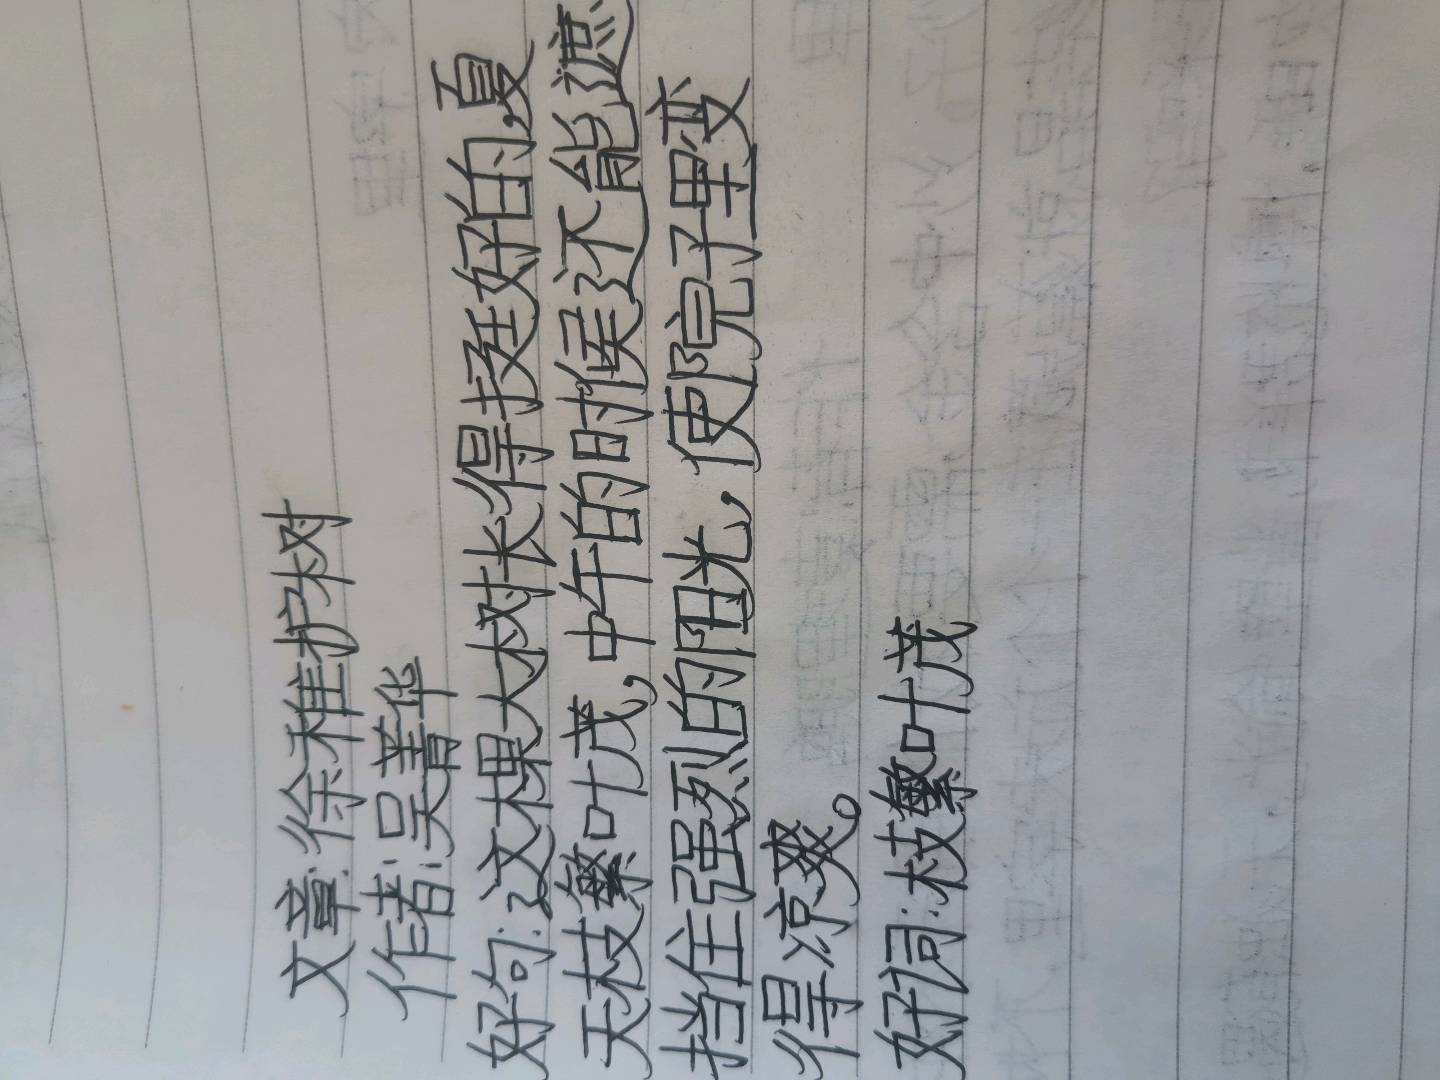 文章:徐稚护树
作者:吴善华
好句:这棵大树长得挺好的,夏
天枝繁叶茂,中午的时候还能遮
挡住强烈的阳光,使院子里变
得凉爽。
好词:枝繁叶茂